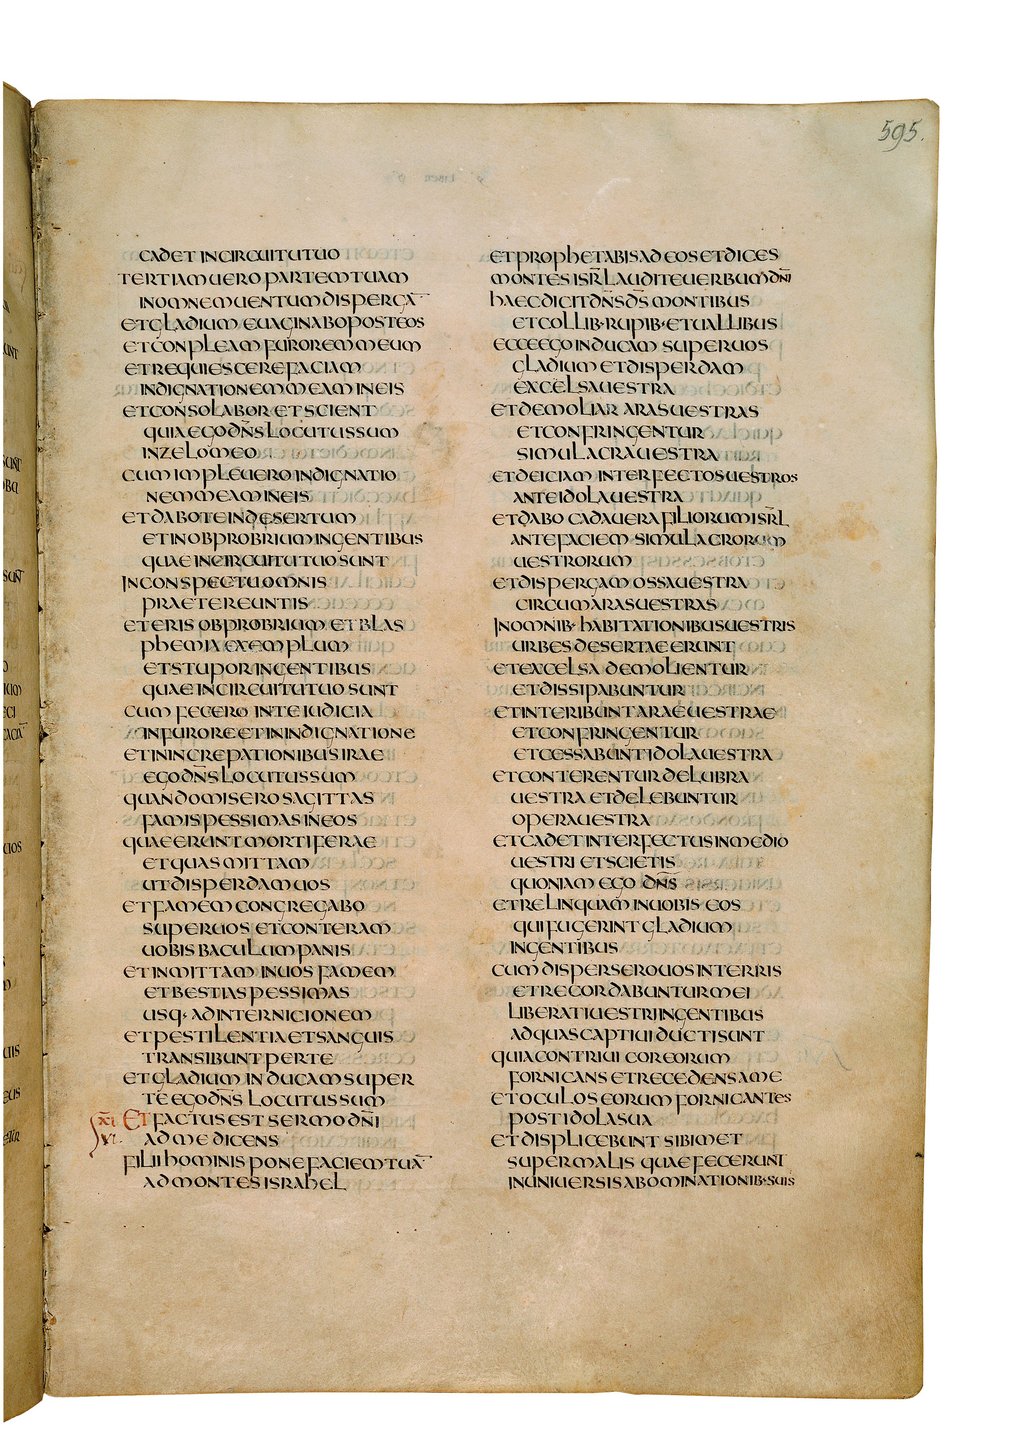 595.
LIBER
CADET IN CIRCUITU TUO
TERTIAM UERO PARTEM TUAM
IN OMNEM UENTUM DISPERGĀ
ET GLADIUM EUAGINABO POST EOS
ET CONPLEAM FUROREM MEUM
ET REQUIESCERE FACIAM
INDIGNATIONEM MEAM IN EIS
ET CONSOLABOR ET SCIENT
QUIA EGO DN̄S LOCUTUS SUM
IN ZELO MEO
CUM IMPLEUERO INDIGNATIO
NEM MEAM IN EIS
ET DABO TE IN DESERTUM
ET IN OBPROBRIUM IN GENTIBUS
QUAE IN CIRCUITU TUO SUNT
IN CONSPECTU OMNIS
PRAETEREUNTIS
ET ERIS OBPROBRIUM ET BLAS
PHEMIA EXEMPLUM
ET STUPOR IN GENTIBUS
QUAE IN CIRCUITU TUO SUNT
CUM FECERO IN TE IUDICIA
IN FURORE ET IN INDIGNATIONE
ET IN INCREPATIONIBUS IRAE
EGO DN̄S LOCUTUS SUM
QUANDO MISERO SAGITTAS
FAMIS PESSIMAS IN EOS
QUAE ERUNT MORTIFERAE
ET QUAS MITTAM
UT DISPERDAM UOS
ET FAMEM CONGREGABO
SUPER UOS ET CONTERAM
UOBIS BACULUM PANIS
ET INMITTAM IN UOS FAMEM
ET BESTIAS PESSIMAS
USQ· AD INTERNICIONEM
ET PESTILENTIA ET SANGUIS
TRANSIBUNT PER TE
ET GLADIUM INDUCAM SUPER
TE EGO DN̄S LOCUTUS SUM
X̄I ET FACTUS EST SERMO DN̄I
VI. AD ME DICENS
FILII HOMINIS PONE FACIEM TUĀ
AD MONTES ISRAHEL
ET PROPHETABIS AD EOS ET DICES
MONTES ISR̄L AUDITE UERBUM DN̄I
HAEC DICIT DN̄S DS̄ MONTIBUS
ET COLLIB· RUPIB· ET UALLIBUS
ECCE EGO INDUCAM SUPER UOS
GLADIUM ET DISPERDAM
EXCELSA UESTRA
ET DEMOLIAR ARAS UESTRAS
ET CONFRINGENTUR
SIMULACRA UESTRA
ET DEICIAM INTERFECTOS UESTROS
ANTE IDOLA UESTRA
ET DABO CADAUERA FILIORUM ISR̄L
ANTE FACIEM SIMULACRORUM
UESTRORUM
ET DISPERGAM OSSA UESTRA
CIRCUM ARAS UESTRAS
IN OMNIB· HABITATIONIBUS UESTRIS
URBES DESERTAE ERUNT
ET EXCELSA DEMOLIENTUR
ET DISSIPABUNTUR
ET INTERIBUNT ARAE UESTRAE
ET CONFRINGENTUR
ET CESSABUNT IDOLA UESTRA
ET CONTERENTUR DELUBRA
UESTRA ET DELEBUNTUR
OPERA UESTRA
ET CADET INTERFECTUS IN MEDIO
UESTRI ET SCIETIS
QUONIAM EGO DN̄S
ET RELINQUAM IN UOBIS EOS
QUI FUGERINT GLADIUM
IN GENTIBUS
CUM DISPERSERO UOS IN TERRIS
ET RECORDABUNTUR MEI
LIBERATI UESTRI IN GENTIBUS
AD QUAS CAPTIUI DUCTI SUNT
QUIA CONTRIUI COR EORUM
FORNICANS ET RECEDENS A ME
ET OCULOS EORUM FORNICANTES
POST IDOLA SUA
ET DISPLICEBUNT SIBIMET
SUPER MALIS QUAE FECERUNT
IN UNIUERSIS ABOMINATIONIB· SUIS